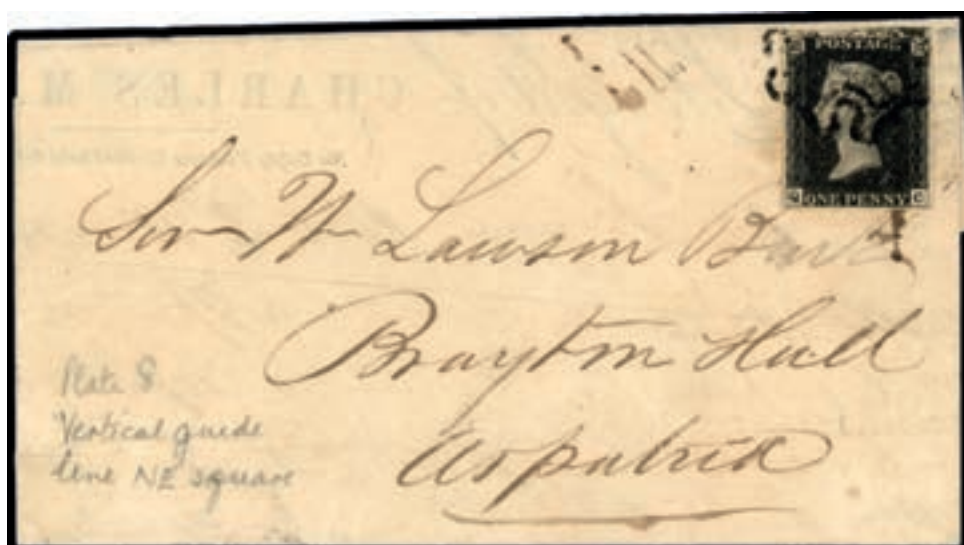 POSTAGE
ONE PENNY
C
CHARLES M
Sir Wm Lawson Bart
Brayton Hall
Aspatria
Plate 8
Vertical guide
line NE square